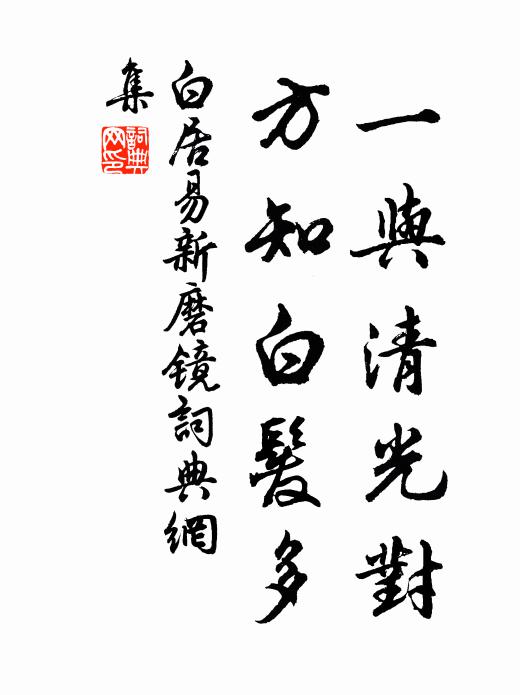 一與清光對
方知白髮多
白居易新磨鏡詞典網
集
詞典
网印